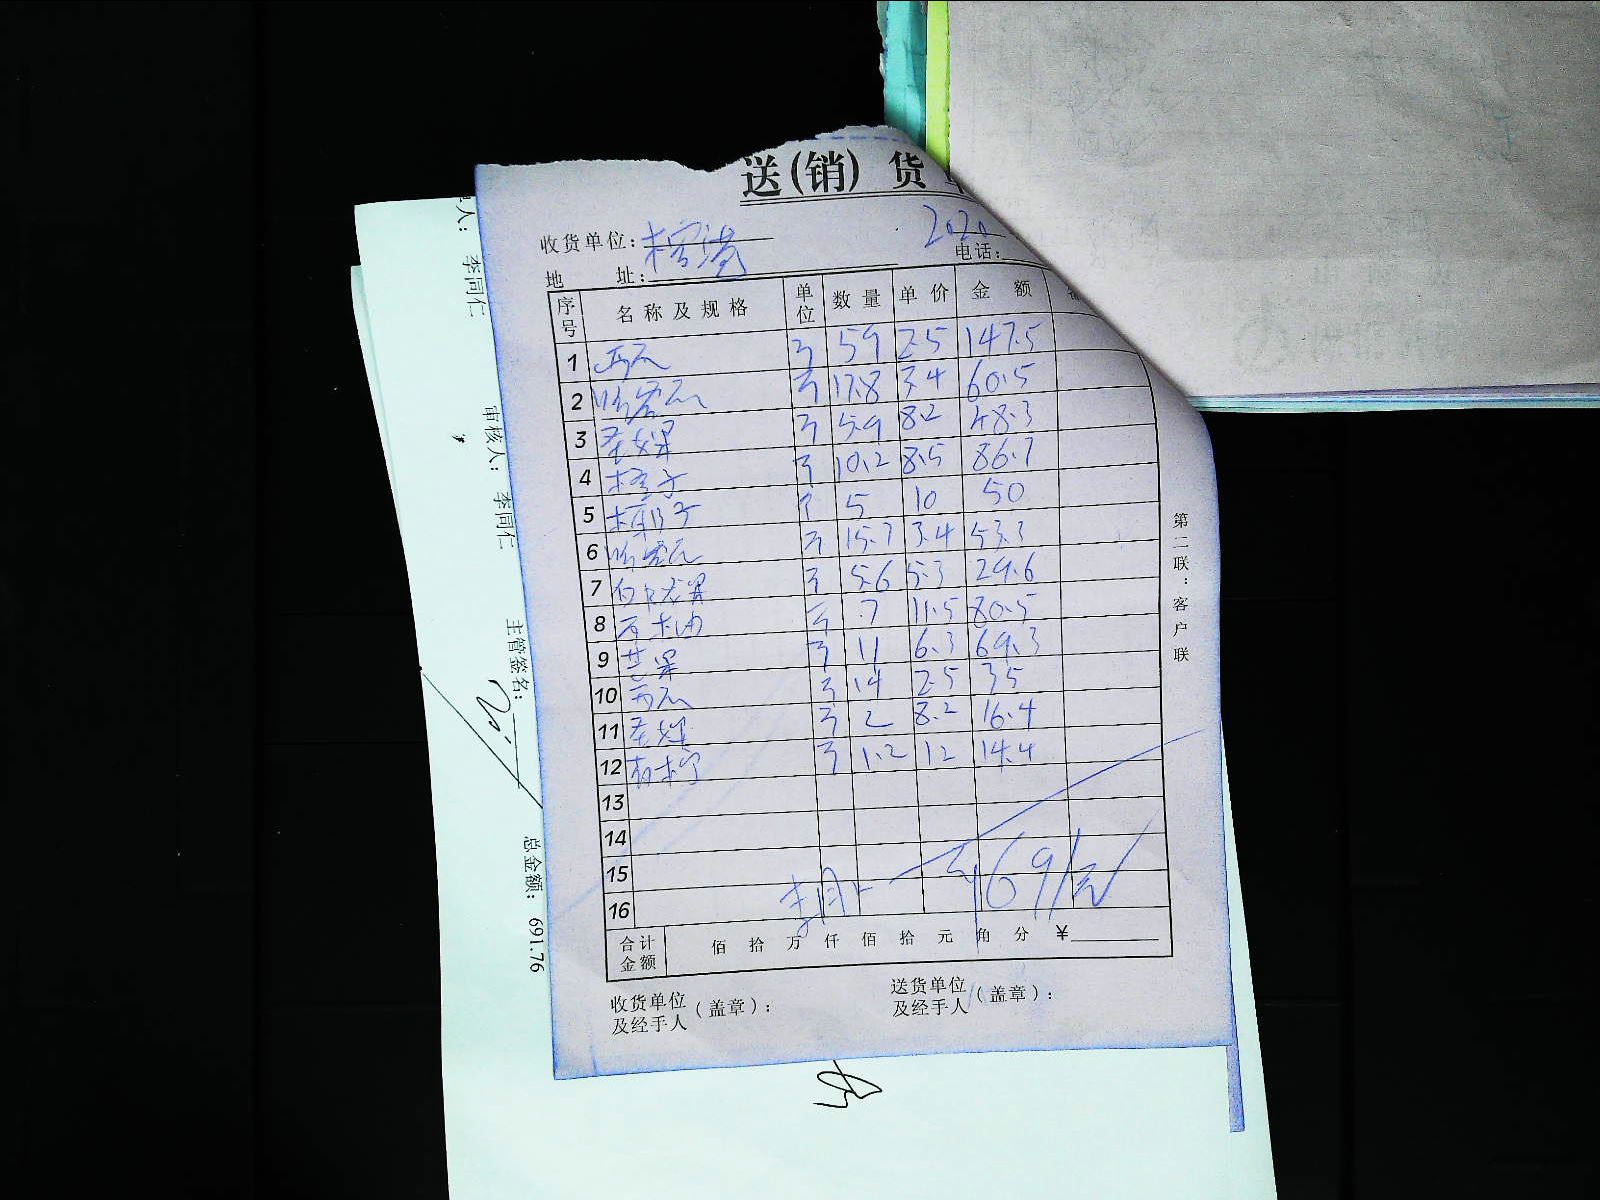 送(销)货
收货单位:
2020
地 址:
电话:
序号 名称及规格 单位 数量 单价 金额
1 西瓜 斤 59 2.5 147.5
2 哈密瓜 斤 17.8 3.4 60.5
3 圣女果 斤 5.9 8.2 48.3
4 橙子 斤 10.2 8.5 86.7
5 椰子 个 5 10 50
6 哈密瓜 斤 15.7 3.4 53.3
7 白火龙果 斤 5.6 5.3 29.6
8 西柚 斤 7 11.5 80.5
9 芒果 斤 11 6.3 69.3
10 西瓜 斤 14 2.5 35
11 圣女果 斤 2 8.2 16.4
12 青柠 斤 1.2 12 14.4
13
14
15
16
691元
合计金额 佰拾万仟佰拾元角分 ¥
收货单位及经手人(盖章):
送货单位及经手人(盖章):
第二联:客户联
人:
李同仁
审核人: 李同仁
主管签名:
总金额: 691.76